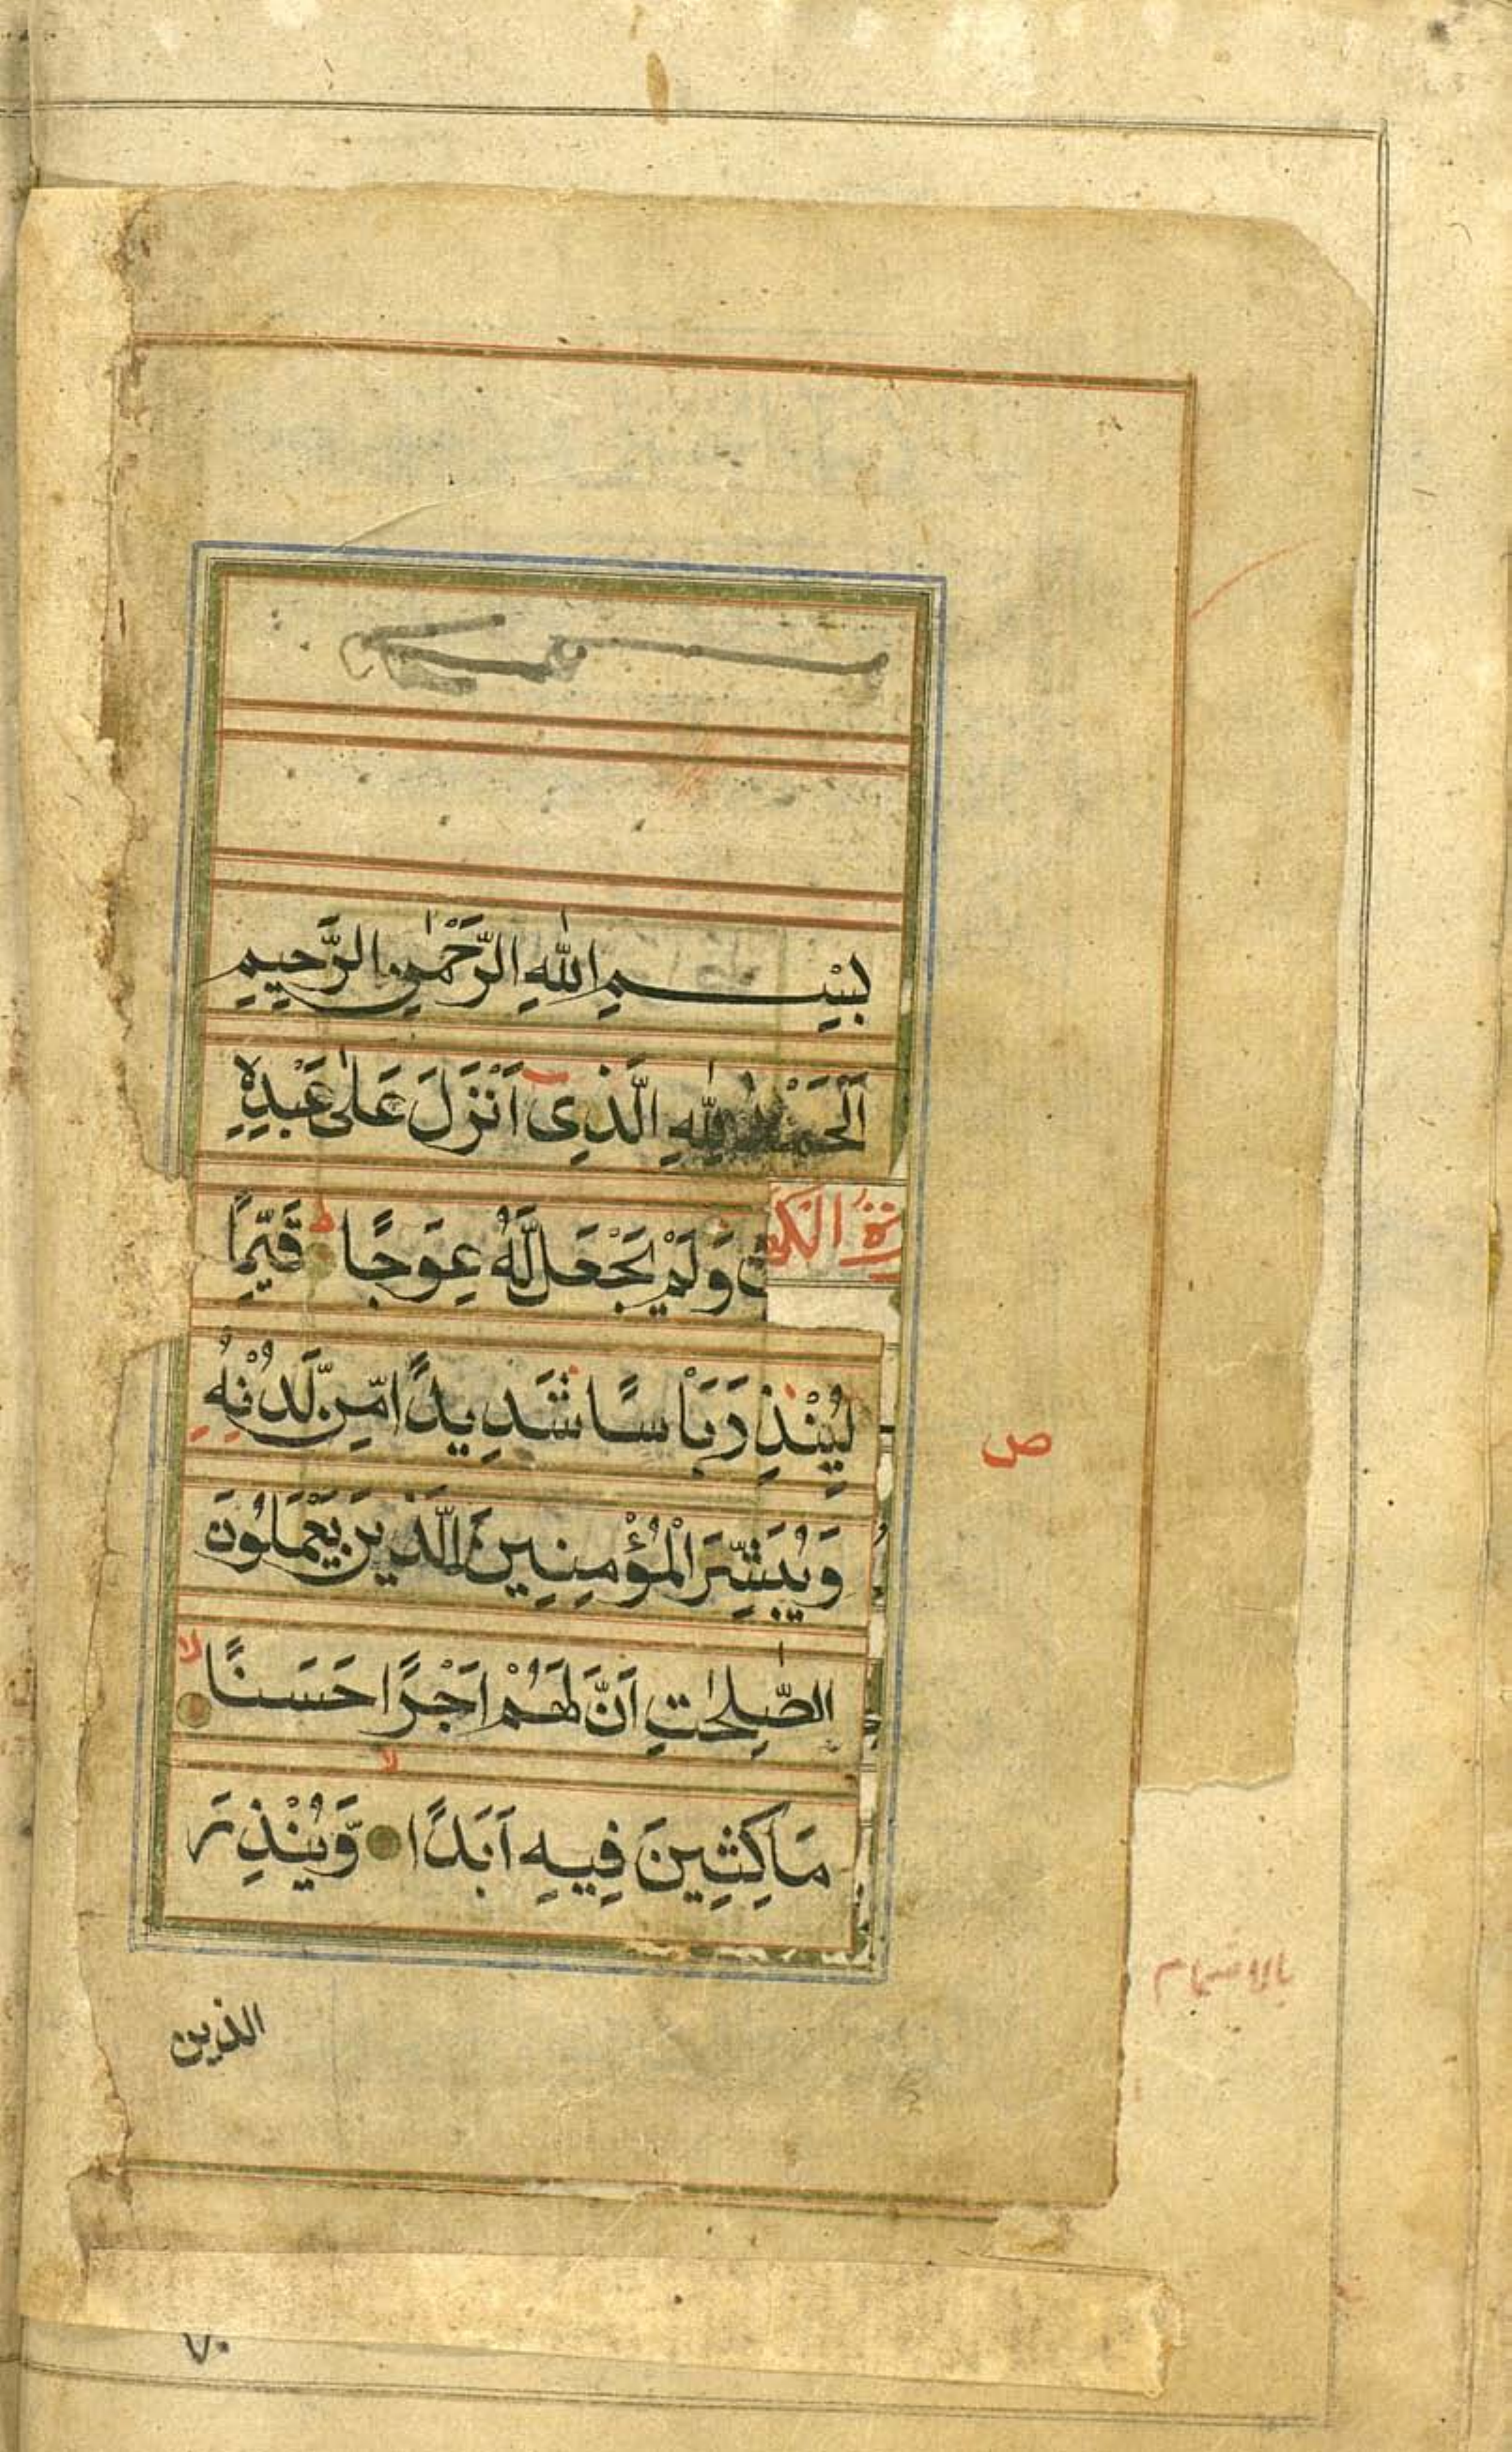 بِسْمِ اللّٰهِ الرَّحْمٰنِ الرَّحِيمِ
اَلْحَمْدُ لِلّٰهِ الَّذِى اَنْزَلَ عَلٰى عَبْدِهِ
وَلَمْ يَجْعَلْ لَّهُ عِوَجًا ط قَيِّمًا
الكهف
لِيُنْذِرَ بَأْسًا شَدِيدًا مِّنْ لَّدُنْهُ
ص
وَيُبَشِّرَ الْمُؤْمِنِينَ الَّذِينَ يَعْمَلُونَ
الصّٰلِحٰتِ اَنَّ لَهُمْ اَجْرًا حَسَنًا لا
مَاكِثِينَ فِيهِ اَبَدًا لا وَّيُنْذِرَ
بالاشمام
الذين
٧٠